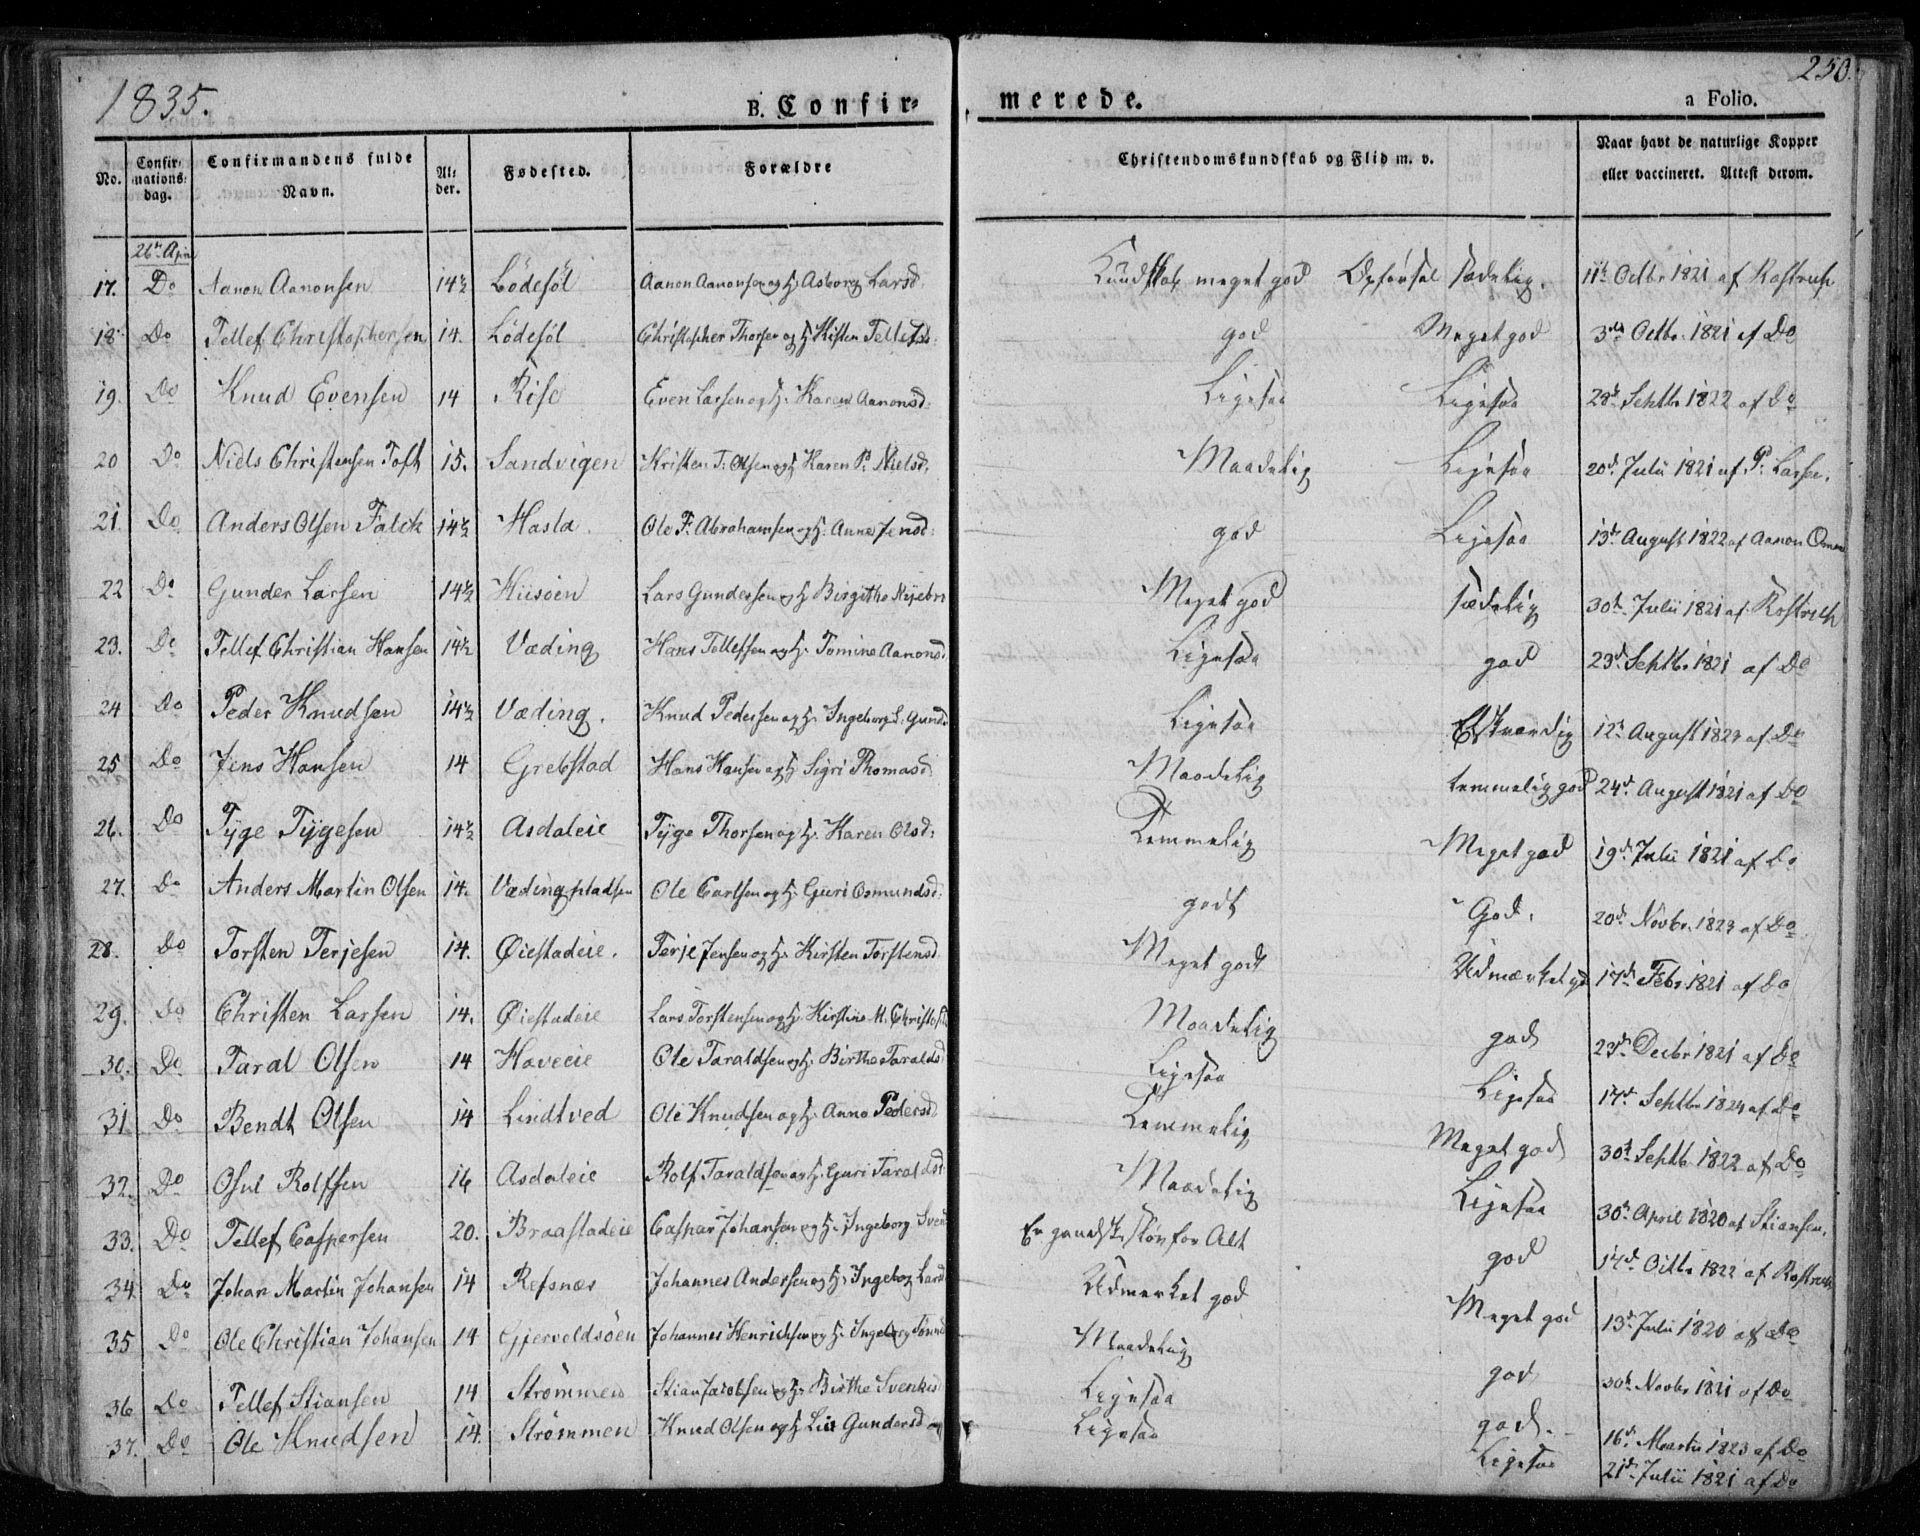 1835.
250.
B. Confir-
merede.
a Folio.
No.
Confir-
mations-
dag.
Confirmandens fulde
Navn.
Al-
der.
Fødested.
Forældre
Christendomskundskab og Flid m. v.
Naar havt de naturlige Kopper
eller vaccineret. Attest derom.
26de April
17. Do Aanon Aanonsen 14½ Lödesöl Aanon Aanonsen og H: Asborg Larsd. Kundskab meget god Opförsel sædelig. 11te Octbr 1821 af Rostrup
18 Do Tellef Christophersen 14. Lödesöl Christopher Thorsen og H: Kisten Tellefsd: god Meget god 3die Octbr. 1821 af Do
19. Do Knud Evensen 14 Rise Even Larsen og H: Karen Aanonsd: Ligesaa Ligesaa 28de Septbr 1822 af Do
20 Do Niels Christensen Toft 15. Sandvigen Kristen T: Olsen og H: Karen P: Nielsd. Maadelig Ligesaa 20de Julii 1821 af P: Larsen.
21. Do Anders Olsen Falck 14½ Hasla. Ole F: Abrahamsen og H: Anne Jensd: god Ligesaa 13de August 1822 af Aanon
22 Do Gunder Larsen 14½ Hiisöen Lars Gundersen og H: Birgithe Meget god sædelig 30te Julii 1821 af Rostrup
23. Do Tellef Christian Hansen 14½ Væding Hans Tellefsen og H: Tomine Aanonsd. Ligesaa god 23de Septbr. 1821 af Do
24 Do Peder Knudsen 14½ Væding. Knud Pedersen og H: Ingeborg L: Gund Ligesaa Elskværdig 12te August 1823 af Do
25 Do Jens Hansen 14 Grebstad Hans Hansen og H: Sigri Thomasd. Maadelig temmelig god 24de August 1821 af Do
26. Do Tÿge Tÿgesen 14½ Asdaleie Tÿge Thorsen og H: Karen Olsd: Temmelig Meget god 19de Julii 1821 af Do
27. Do Anders Martin Olsen 14. Væding pladsen Ole Carlsen og H: Guri Osmundsd: godt God. 20de Novbr. 1823 af Do
28. Do Torsten Terjesen 14. Øiestadeie. Terje Jensen og H: Kirsten Torstensd. Meget godt Udmærket god 17de Febr. 1821 af Do
29. Do Christen Larsen 14. Øiestadeie Lars Torstensen og H: Kirstine M: Maadelig god 23de Decbr 1821 af Do
30. Do Taral Olsen 14 Haveeie Ole Taraldsen og H: Birthe Taralds Ligesaa Ligesaa 17de Septbr 1824 af Do
31. Do Bendt Olsen 14 Lindtved Ole Knudsen og H: Anne Pedersd Temmelig Meget god 30te Septbr. 1822 af Do
32. Do Osul Rolfsen 16 Asdaleie Rolf Taraldsen og H: Guri Taraldsd Maadelig Ligesaa 30te April 1820 af Stiansen.
33. Do Tellef Caspersen 20. Braastadeie Caspar Johansen og H: Ingeborg Svend Er gandske sløv for Alt god 14de Octbr 1822 af Rostrup
34. Do Johan Martin Johansen 14 Refsnæs Johannes Andersen og H: Ingeborg Larsd Udmerket god Meget god 13de Julii 1820 af Do
35 Do Ole Christian Johansen 14 Gjervoldsöen Johannes Henrichsen og H: Ingeborg Maadelig god 30te Novbr 1821 af Do
36 Do Tellef Stiansen 14 Strømmen Stian Jacobsen og H: Birthe Ligesaa god. 16de Martii 1823 af Do
37. Do Ole Knudsen 14. Strømmen Knud Olsen og H: Liv Gundersd Ligesaa Ligesaa 21de Julii 1821 af Do